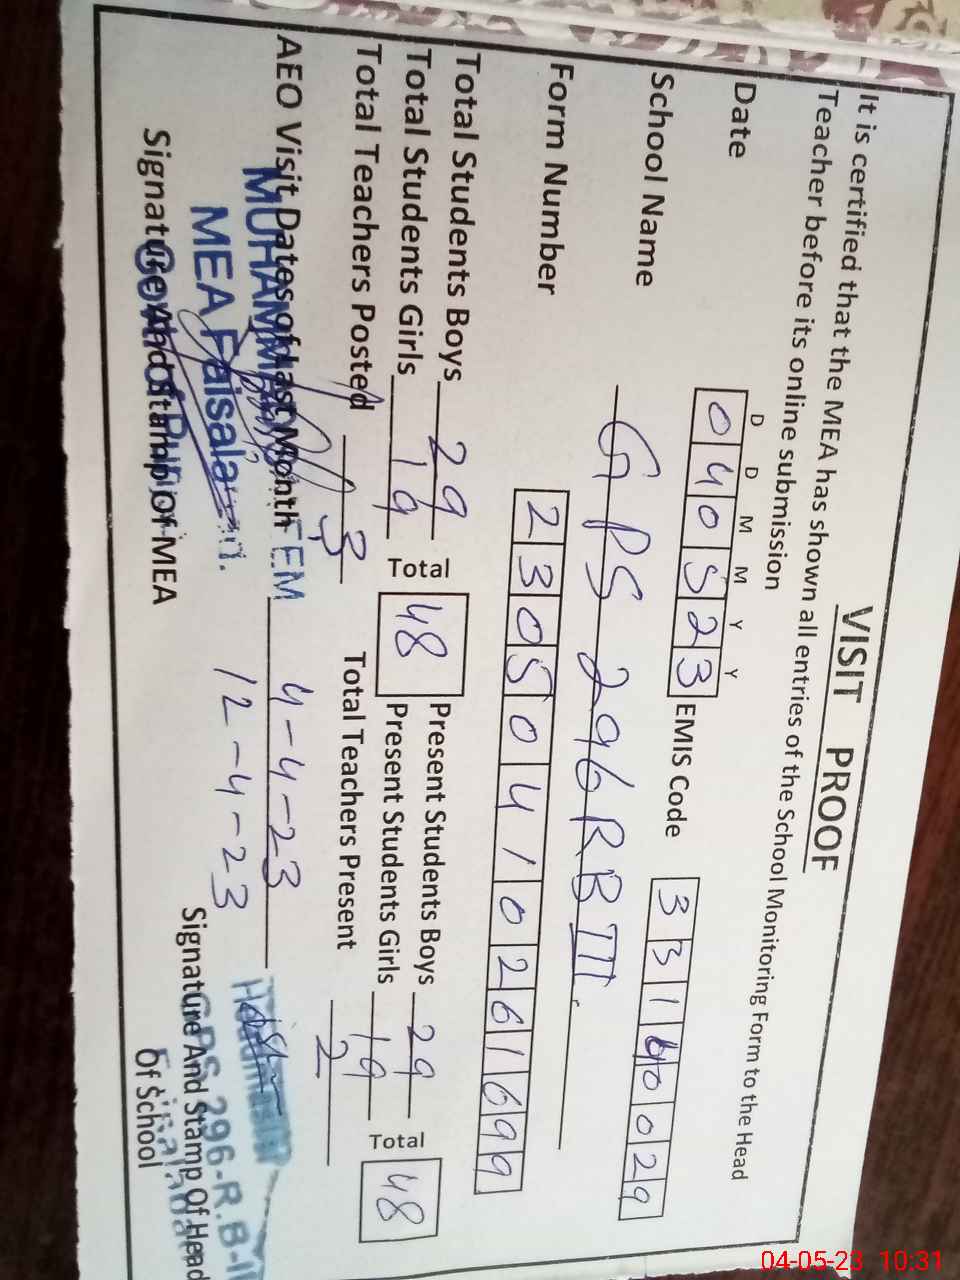 VISIT PROOF
It is certified that the MEA has shown all entries of the School Monitoring Form to the Head
Teacher before its online submission
D D M M Y Y
Date 040523 EMIS Code 33160029
School Name GPS 296 RB III
Form Number 23050410261699
Total Students Boys 29 Total 48 Present Students Boys 29 Total 48
Total Students Girls 19 Present Students Girls 19
Total Teachers Posted 3 Total Teachers Present 2
AEO Visit Dates of Last Month 4-4-23
12-4-23
MEA Faisalabad.
Signature And Stamp Of MEA
Signature And Stamp Of Head
Of School
GPS 296-R.B-III
04-05-23 10:31